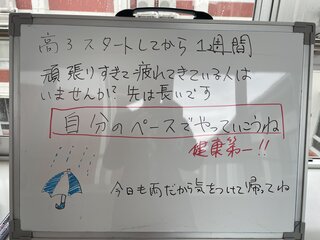 高3スタートしてから1週間
頑張りすぎて疲れてきている人は
いませんか? 先は長いです
自分のペースでやっていこうね
健康第一!!
今日も雨だから気をつけて帰ってね